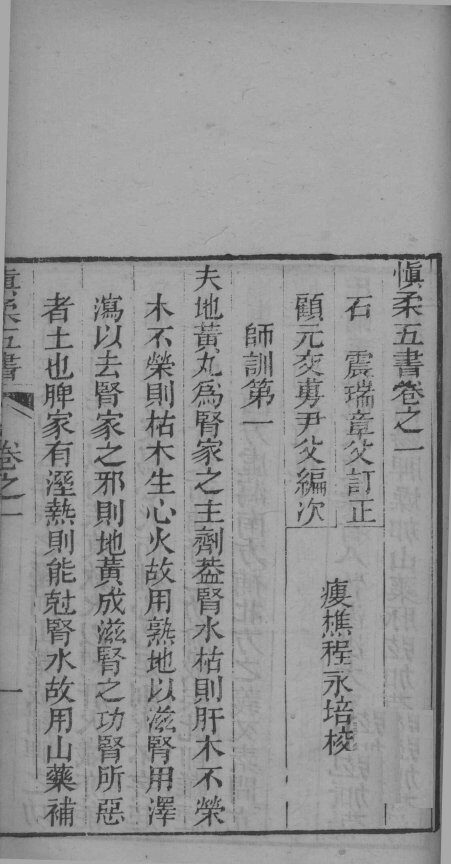 慎柔五書卷之一
石　震瑞章父訂正
顧元交𢍆尹父編次
瘦樵程永培校
師訓第一
夫地黃丸為腎家之主劑葢腎水枯則肝木不榮
木不榮則枯木生心火故用熟地以滋腎用澤
瀉以去腎家之邪則地黃成滋腎之功腎所惡
者土也脾家有溼熱則能尅腎水故用山藥補
慎柔五書
卷之一
一